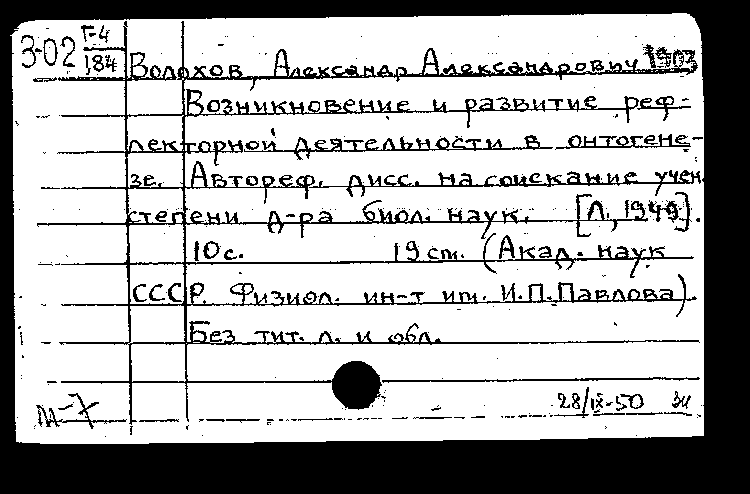 3-02 Г-4
184
Волохов, Александр Александрович 1903
Возникновение и развитие реф-
лекторной деятельности в онтогене-
зе. Автореф. дисс. на соискание учен.
степени д-ра биол. наук. [Л., 1949].
10 с. 19 см. (Акад. наук
СССР. Физиол. ин-т им. И.П.Павлова).
Без тит. л. и обл.
28/IX-50